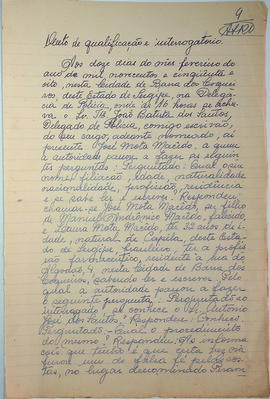 9
Auto de qualificação e interrogatorio.
Aos doze dias do mês fevereiro do
ano de mil novecentos e cinquenta e
oito, nesta Cidade de Barra dos Coquei
ros, deste Estado de Sergipe, na Delega
cia de Policia, onde às 16 horas se achava
o Sr. João Batista dos Santos,
Delegado de Policia, comigo escrivão,
do seu cargo, adiante nomeado, aí
presente José Mota Macido, a quem
a autoridade passou a fazer as seguin
tes perguntas: Perguntado: Qual o seu
nome, filiação, idade, naturalidade
nacionalidade, profissão, residência
e se sabe ler e escrever. Respondeu:
chamar-se José Mota Macido, filho
de Manuel Macido, falecido,
e Laura Mota Macido, ter 32 anos de i
dade, natural de Capela, deste Esta
do de Sergipe, brasileiro, ter a profis
são farmaceutico, residente à rua do
Algodão, 4, nesta Cidade de Barra dos
Coqueiros, sabendo ler e escrever. Pelo
qual a autoridade passou a fazer
a seguinte pergunta: Perguntado ao
interrogado se conhece o Sr. Antonio
José dos Santos? Respondeu: Conheço.
Perguntado: Qual o procedimento
do mesmo? Respondeu: As informa
ções que tenho é que certa vez
furou um de bala pelas cos
tas, no lugar denominado